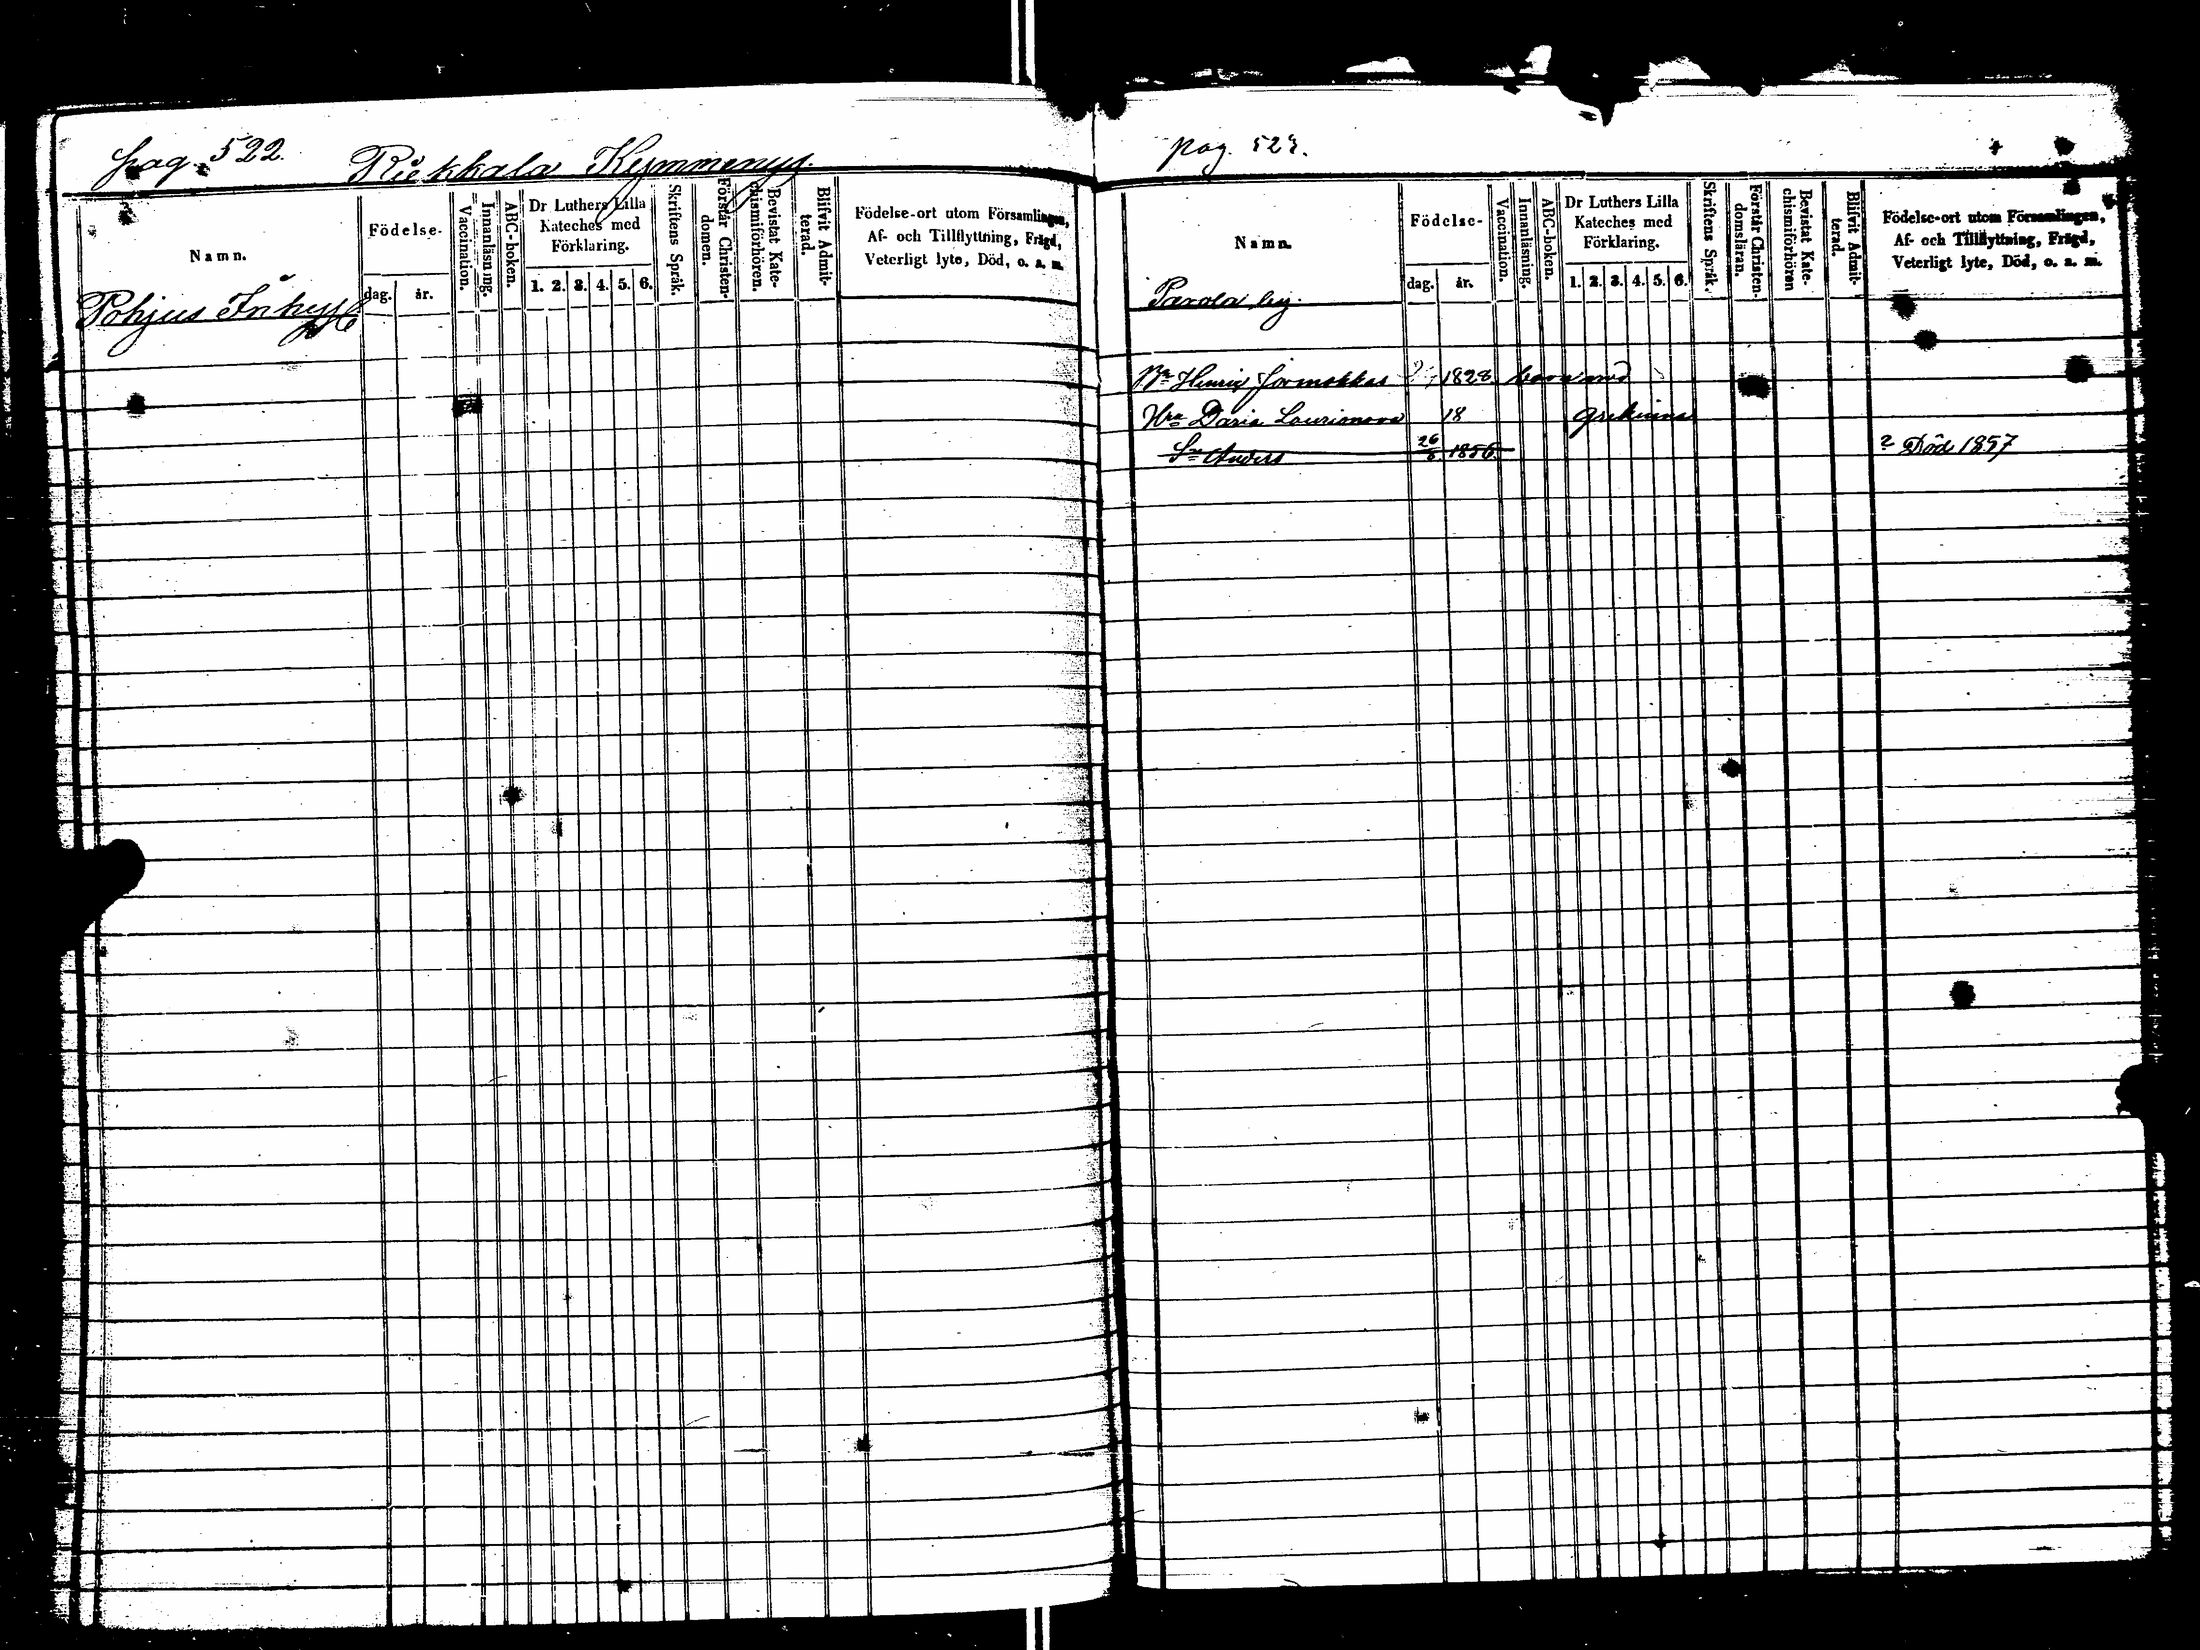 pag. 522. Riekkala Kymmenys.
Namn.
Födelse-
dag.
år.
Vaccination.
Innanläsning.
ABC-boken.
Dr Luthers Lilla
Kateches med
Förklaring.
1. 2. 3. 4. 5. 6.
Skriftens Språk.
Förstår Christen-
domen.
Bevistat Kate-
chismiförhören.
Blifvit Admit-
terad.
Födelse-ort utom Församlingen,
Af- och Tillflyttning, Frägd,
Veterligt lyte, Död, o. a. m.
Pohjus
pag. 523.
Namn.
Födelse-
dag.
år.
Vaccination.
Innanläsning.
ABC-boken.
Dr Luthers Lilla
Kateches med
Förklaring.
1. 2. 3. 4. 5. 6.
Skriftens Språk.
Förstår Christen-
domsläran.
Bevistat Kate-
chismiförhören
Blifvit Admit-
terad.
Födelse-ort utom Församlingen,
Af- och Tillflyttning, Frägd,
Veterligt lyte, Död, o. a. m.
Parola by.
Henrig 1828
Hru Daria Laurianova 18
Sn Anders 26/8 1856 2 Död 1857